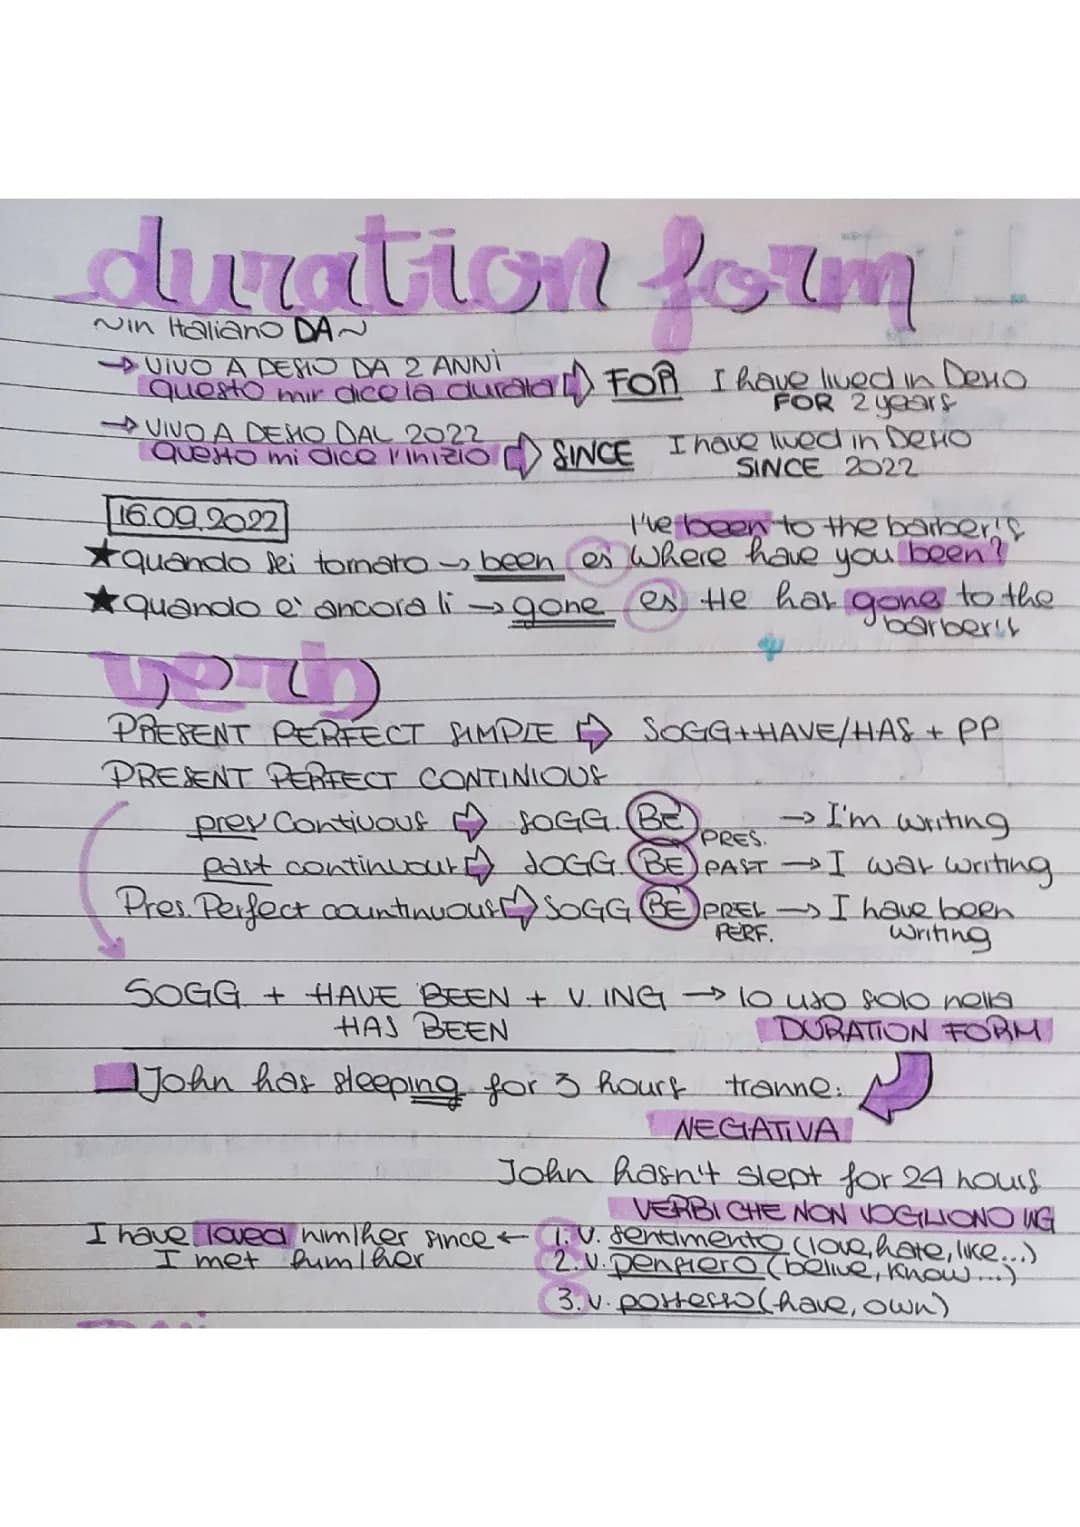 duration form
~in Italiano DA~
→ VIVO A DESIO DA 2 ANNI
questo mir dice la durata ⇨ FOR I have lived in Desio
FOR 2 years
→ VIVO A DESIO DAL 2022
questo mi dice l'inizio ⇨ SINCE I have lived in Desio
SINCE 2022
16.09.2022
I've been to the barber's
★ quando sei tornato → been es Where have you been?
★ quando e' ancora li → gone es He has gone to the
barber's
verb
PRESENT PERFECT SIMPLE ⇨ SOGG+HAVE/HAS + PP
PRESENT PERFECT CONTINIOUS
pres Contiuous ⇨ SOGG. BE PRES. → I'm writing
past continuous ⇨ SOGG. BE PAST → I was writing
Pres. Perfect countinuous ⇨ SOGG BE PRES. PERF. → I have been
writing
SOGG + HAVE BEEN + V. ING → lo uso solo nella
HAS BEEN DURATION FORM
John has sleeping for 3 hours tranne:
NEGATIVA
John hasn't slept for 24 hours
VERBI CHE NON VOGILIONO ING
I have loved him/her since ← 1. V. sentimento (love, hate, like...)
I met him/her 2. V. pensiero (belive, know...)
3. V. possesso (have, own)